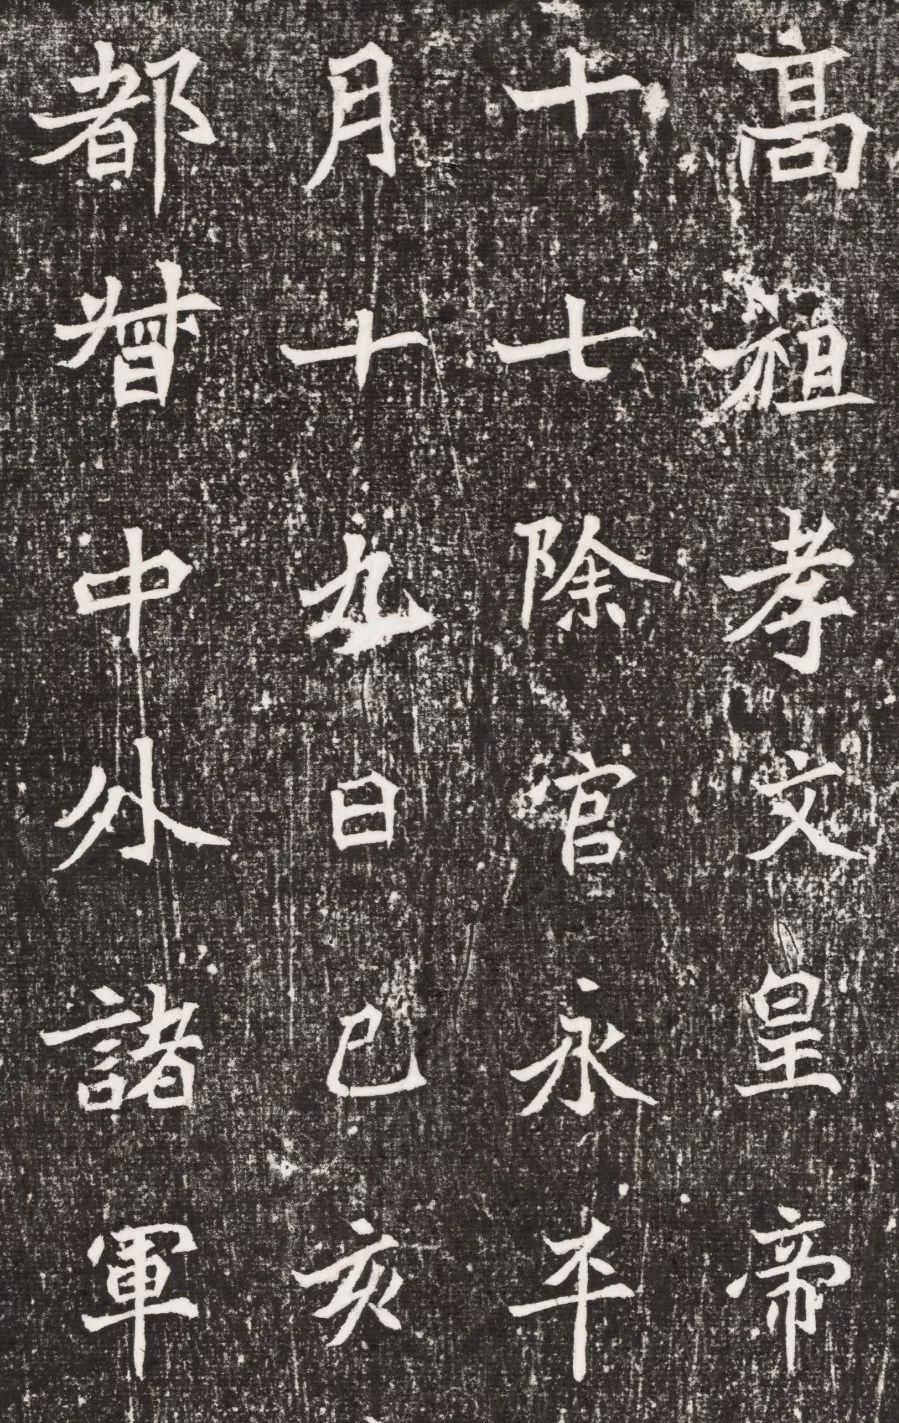 高祖孝文皇帝
十七除官永平
月十九日己亥
都督中外諸軍